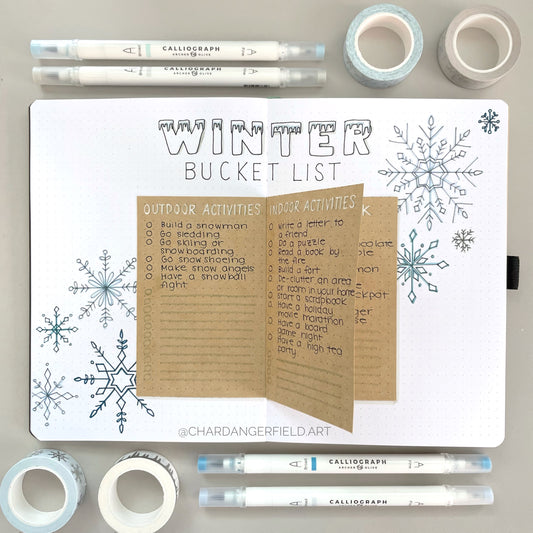 CALLIOGRAPH
ARCHER & OLIVE
CALLIOGRAPH
ARCHER & OLIVE
WINTER
BUCKET LIST
OUTDOOR ACTIVITIES
Build a snowman
Go sledding
Go skiing or
snowboarding
Go snowshoeing
Make snow angels
Have a snowball
fight
INDOOR ACTIVITIES
Write a letter to
a friend
Do a puzzle
Read a book by
the fire
Build a fort
De-clutter an area
or room in your home
Start a scrapbook
Have a holiday
movie marathon
Have a board
game night
Have a high tea
party
K
ocolate
le
mon
ckpot
ger
se
@CHARDANGERFIELD.ART
CALLIOGRAPH
ARCHER & OLIVE
CALLIOGRAPH
ARCHER & OLIVE